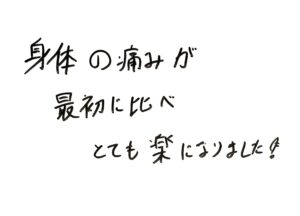 身体の痛みが
最初に比べ
とても楽になりました!